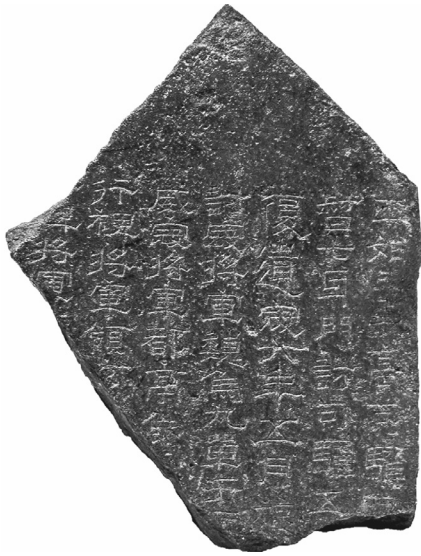 正始三年高句驪
督七牙門討句驪五
復遺寇六年五月
討寇將軍魏烏丸單于
威寇將軍都亭侯
行裨將軍領
將軍